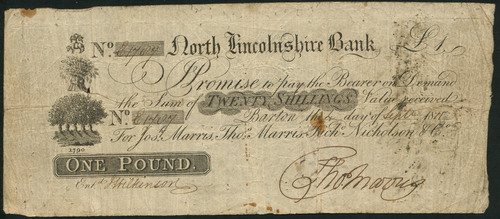 No. North Lincolnshire Bank £1
Promise to pay the Bearer on Demand
the Sum of TWENTY SHILLINGS Value received
No. Barton day of Sept.
For Jos. Marris, Thos. Marris, Rich. Nicholson & Co.
1790
ONE POUND.
Entd. J Wilkinson
Thos Marris